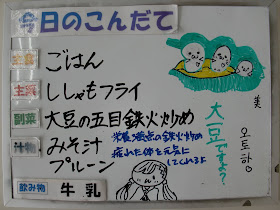 今日のこんだて
主食
ごはん
主菜
ししゃもフライ
副菜
大豆の五目鉄火炒め
汁物
みそ汁
プルーン
栄養満点の鉄火炒め
疲れた体を元気に
してくれるよ
飲み物
牛乳
大豆ですよ?
美
오토하